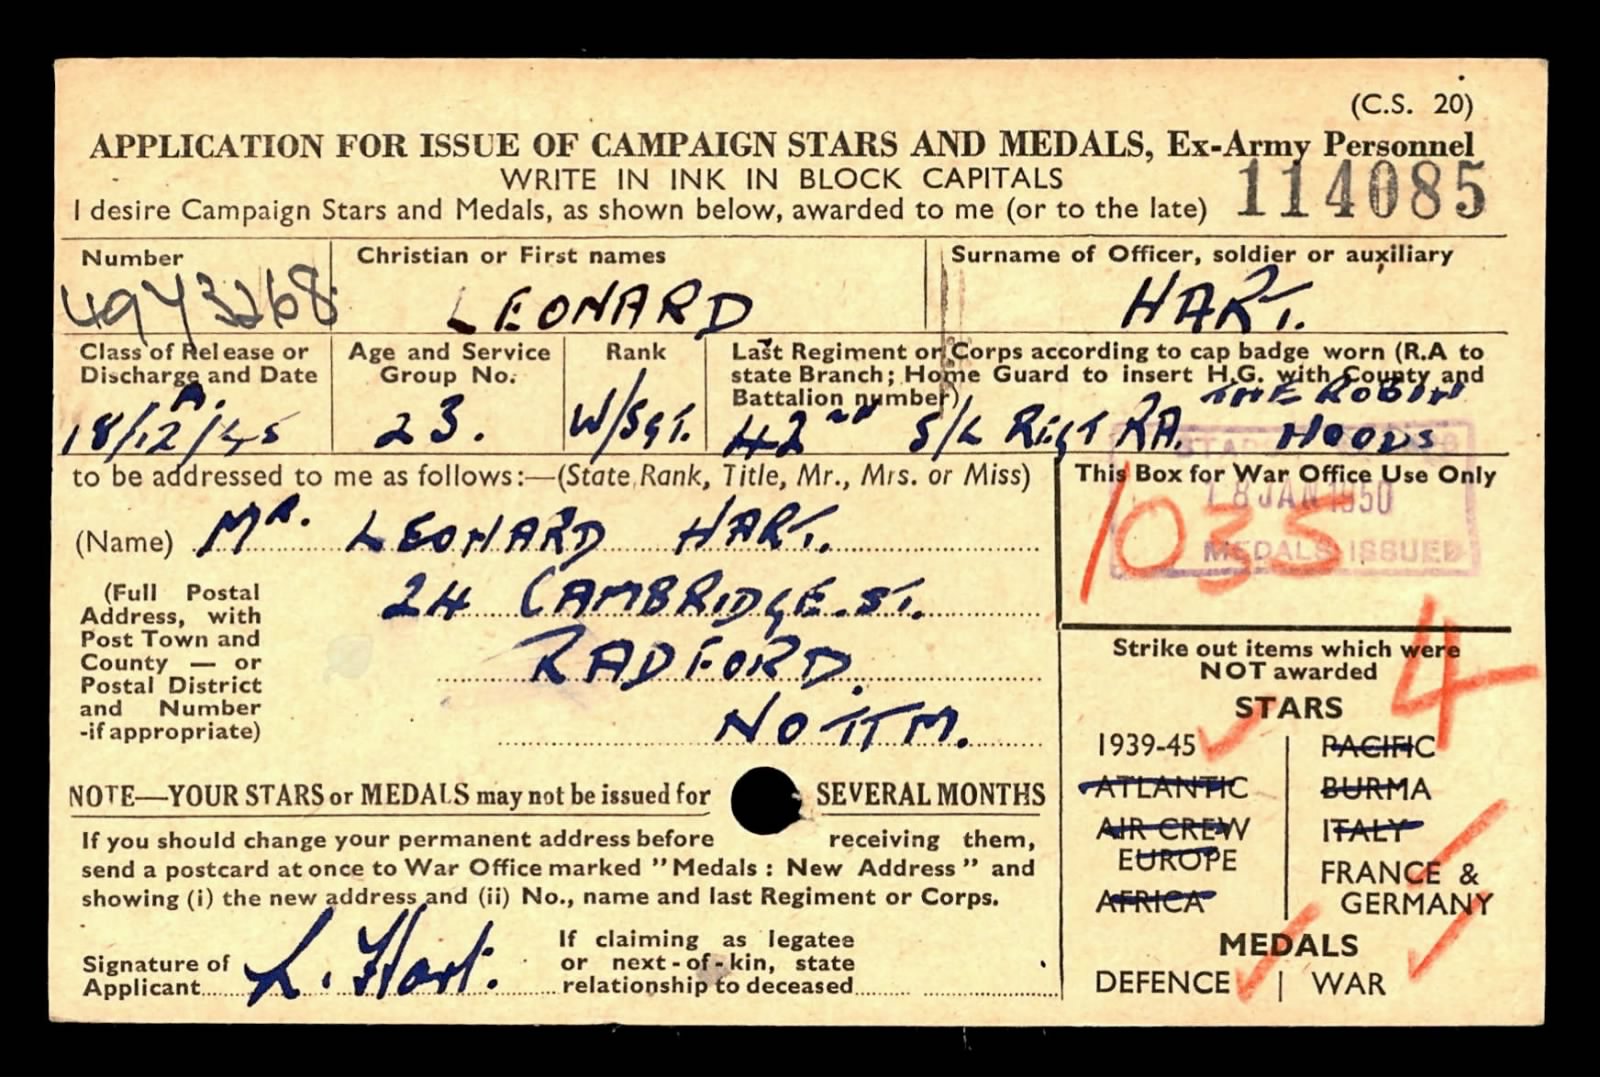 (C.S. 20)
APPLICATION FOR ISSUE OF CAMPAIGN STARS AND MEDALS, Ex-Army Personnel
WRITE IN INK IN BLOCK CAPITALS
I desire Campaign Stars and Medals, as shown below, awarded to me (or to the late) 114085
Number
4943268
Christian or First names
LEONARD
Surname of Officer, soldier or auxiliary
HART.
Class of Release or
Discharge and Date
A.
18/12/45
Age and Service
Group No.
23.
Rank
W/Sgt.
Last Regiment or Corps according to cap badge worn (R.A to
state Branch; Home Guard to insert H.G. with County and
Battalion number)
THE ROBIN
42ND S/L REGT RA. HOODS
to be addressed to me as follows:—(State Rank, Title, Mr., Mrs. or Miss)
(Name) MR. LEONARD HART.
(Full Postal
Address, with
Post Town and
County — or
Postal District
and Number
-if appropriate)
24 CAMBRIDGE. ST.
RADFORD.
NOTTM.
This Box for War Office Use Only
18 JAN 1950
MEDALS ISSUED
1035
4
Strike out items which were
NOT awarded
STARS
1939-45
PACIFIC
ATLANTIC
BURMA
AIR CREW
EUROPE
ITALY
AFRICA
FRANCE &
GERMANY
MEDALS
DEFENCE | WAR
NOTE—YOUR STARS or MEDALS may not be issued for SEVERAL MONTHS
If you should change your permanent address before receiving them,
send a postcard at once to War Office marked "Medals : New Address" and
showing (i) the new address and (ii) No., name and last Regiment or Corps.
Signature of
Applicant L. Hart.
If claiming as legatee
or next-of-kin, state
relationship to deceased